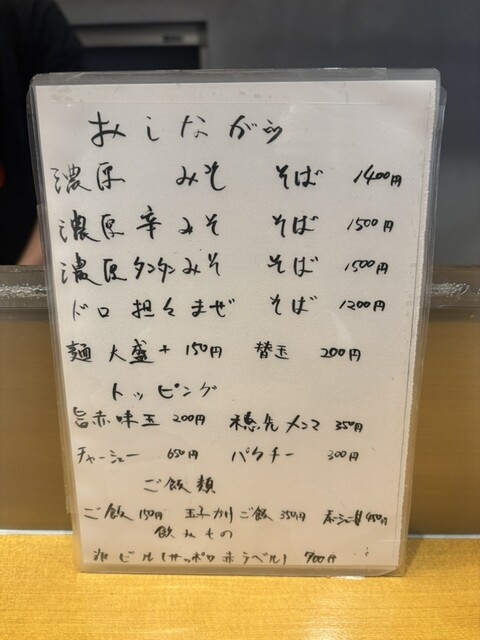 おしながき
濃厚 みそ そば 1400円
濃厚 辛みそ そば 1500円
濃厚 タンタンみそ そば 1500円
ドロ 担々 まぜ そば 1200円
麺 大盛 + 150円 替玉 200円
トッピング
旨赤味玉 200円 穂先メンマ 350円
チャーシュー 650円 パクチー 300円
ご飯類
ご飯 150円 ご飯 350円 450円
飲みもの
ビール(サッポロ赤ラベル) 700円